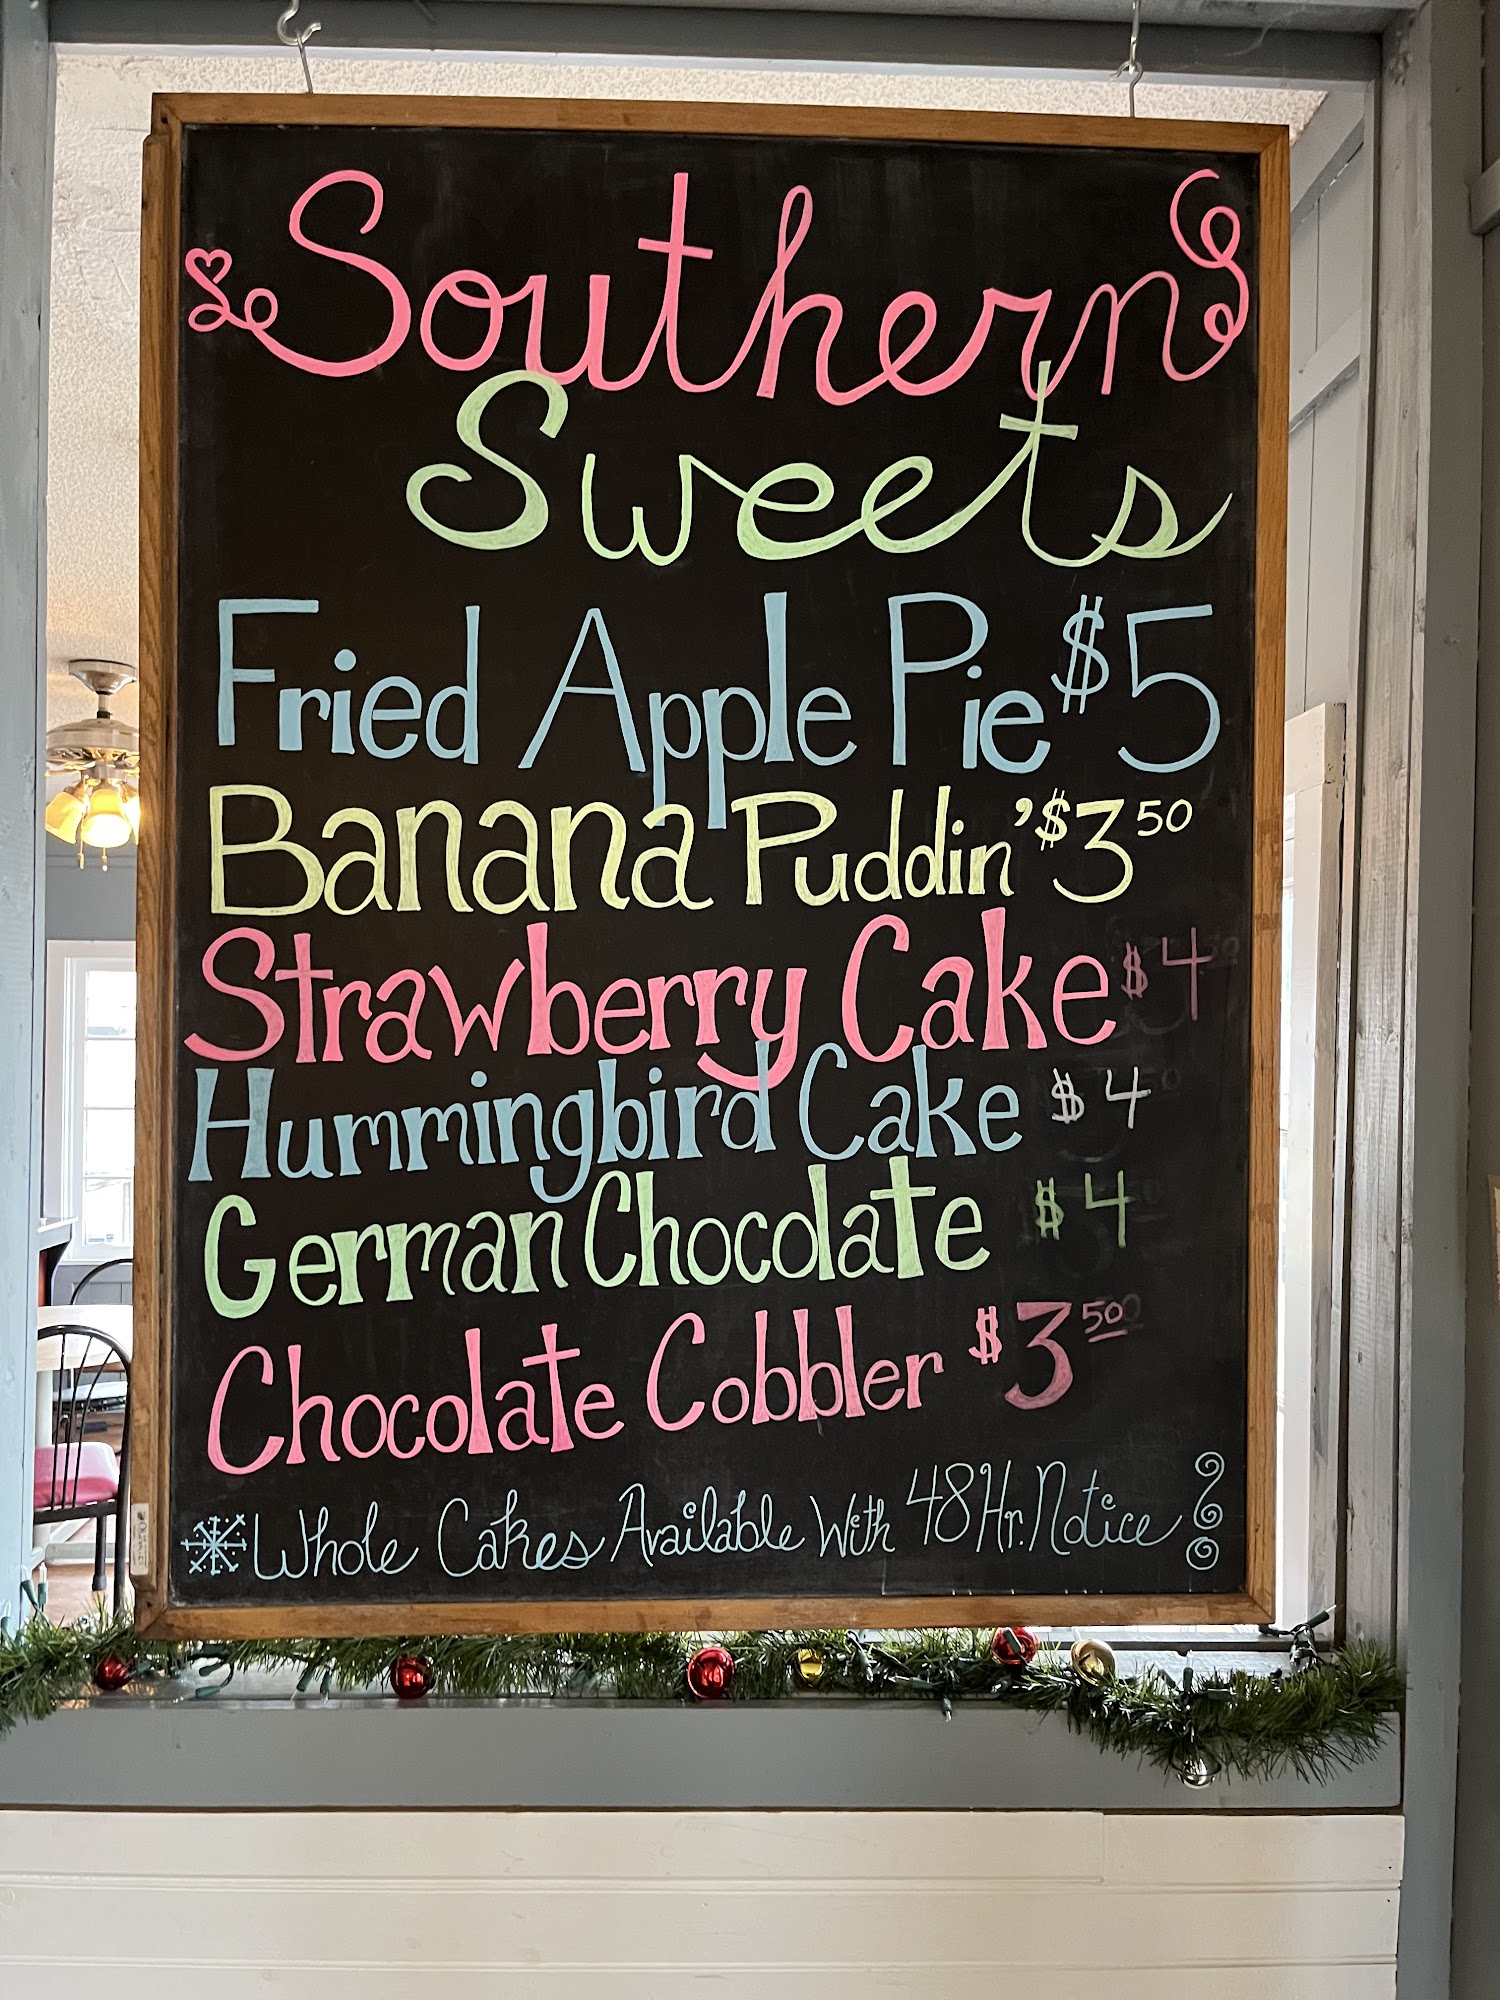 Southern
Sweets
Fried Apple Pie $5
Banana Puddin' $3 50
Strawberry Cake $4
Hummingbird Cake $4
German Chocolate $4
Chocolate Cobbler $3 50
Whole Cakes Available With 48 Hr. Notice